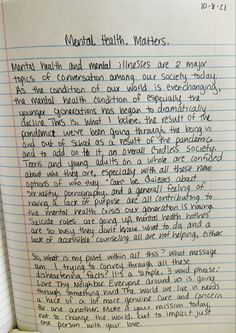 10-8-21
Mental Health Matters.
Mental health and mental illnesses are 2 major
topics of conversation among our society today.
As the condition of our world is everchanging,
the mental health condition of especially the
younger generations has began to dramatically
decline. This is what I believe, the result of the
pandemic we've been going through, the being in
and out of school as a result of the pandemic
and to add on to it an overall Godless society.
Teens and young adults on a whole are confused
about who they are, especially with all these new
options of who they "can" be. Quizes about
sexuality, pronouns, and a general feeling of
having a lack of purpose are all contributing to
the mental health crisis our generation is having.
Suicide rates are going up, mental health hotlines
are so busy they don't know what to do and a
lack of accessible counseling all are not helping, either.
So, what is my point within all this? What message
am I trying to convey through all these
disheartening facts? It's a simple, 3 word phrase:
Love Thy Neighbor. Everyone around us is going
through something and the world we live in needs
a heck of a lot more genuine care and concern
for one another. Make it your mission today,
not to change the world, but to impact just
one person with your love.